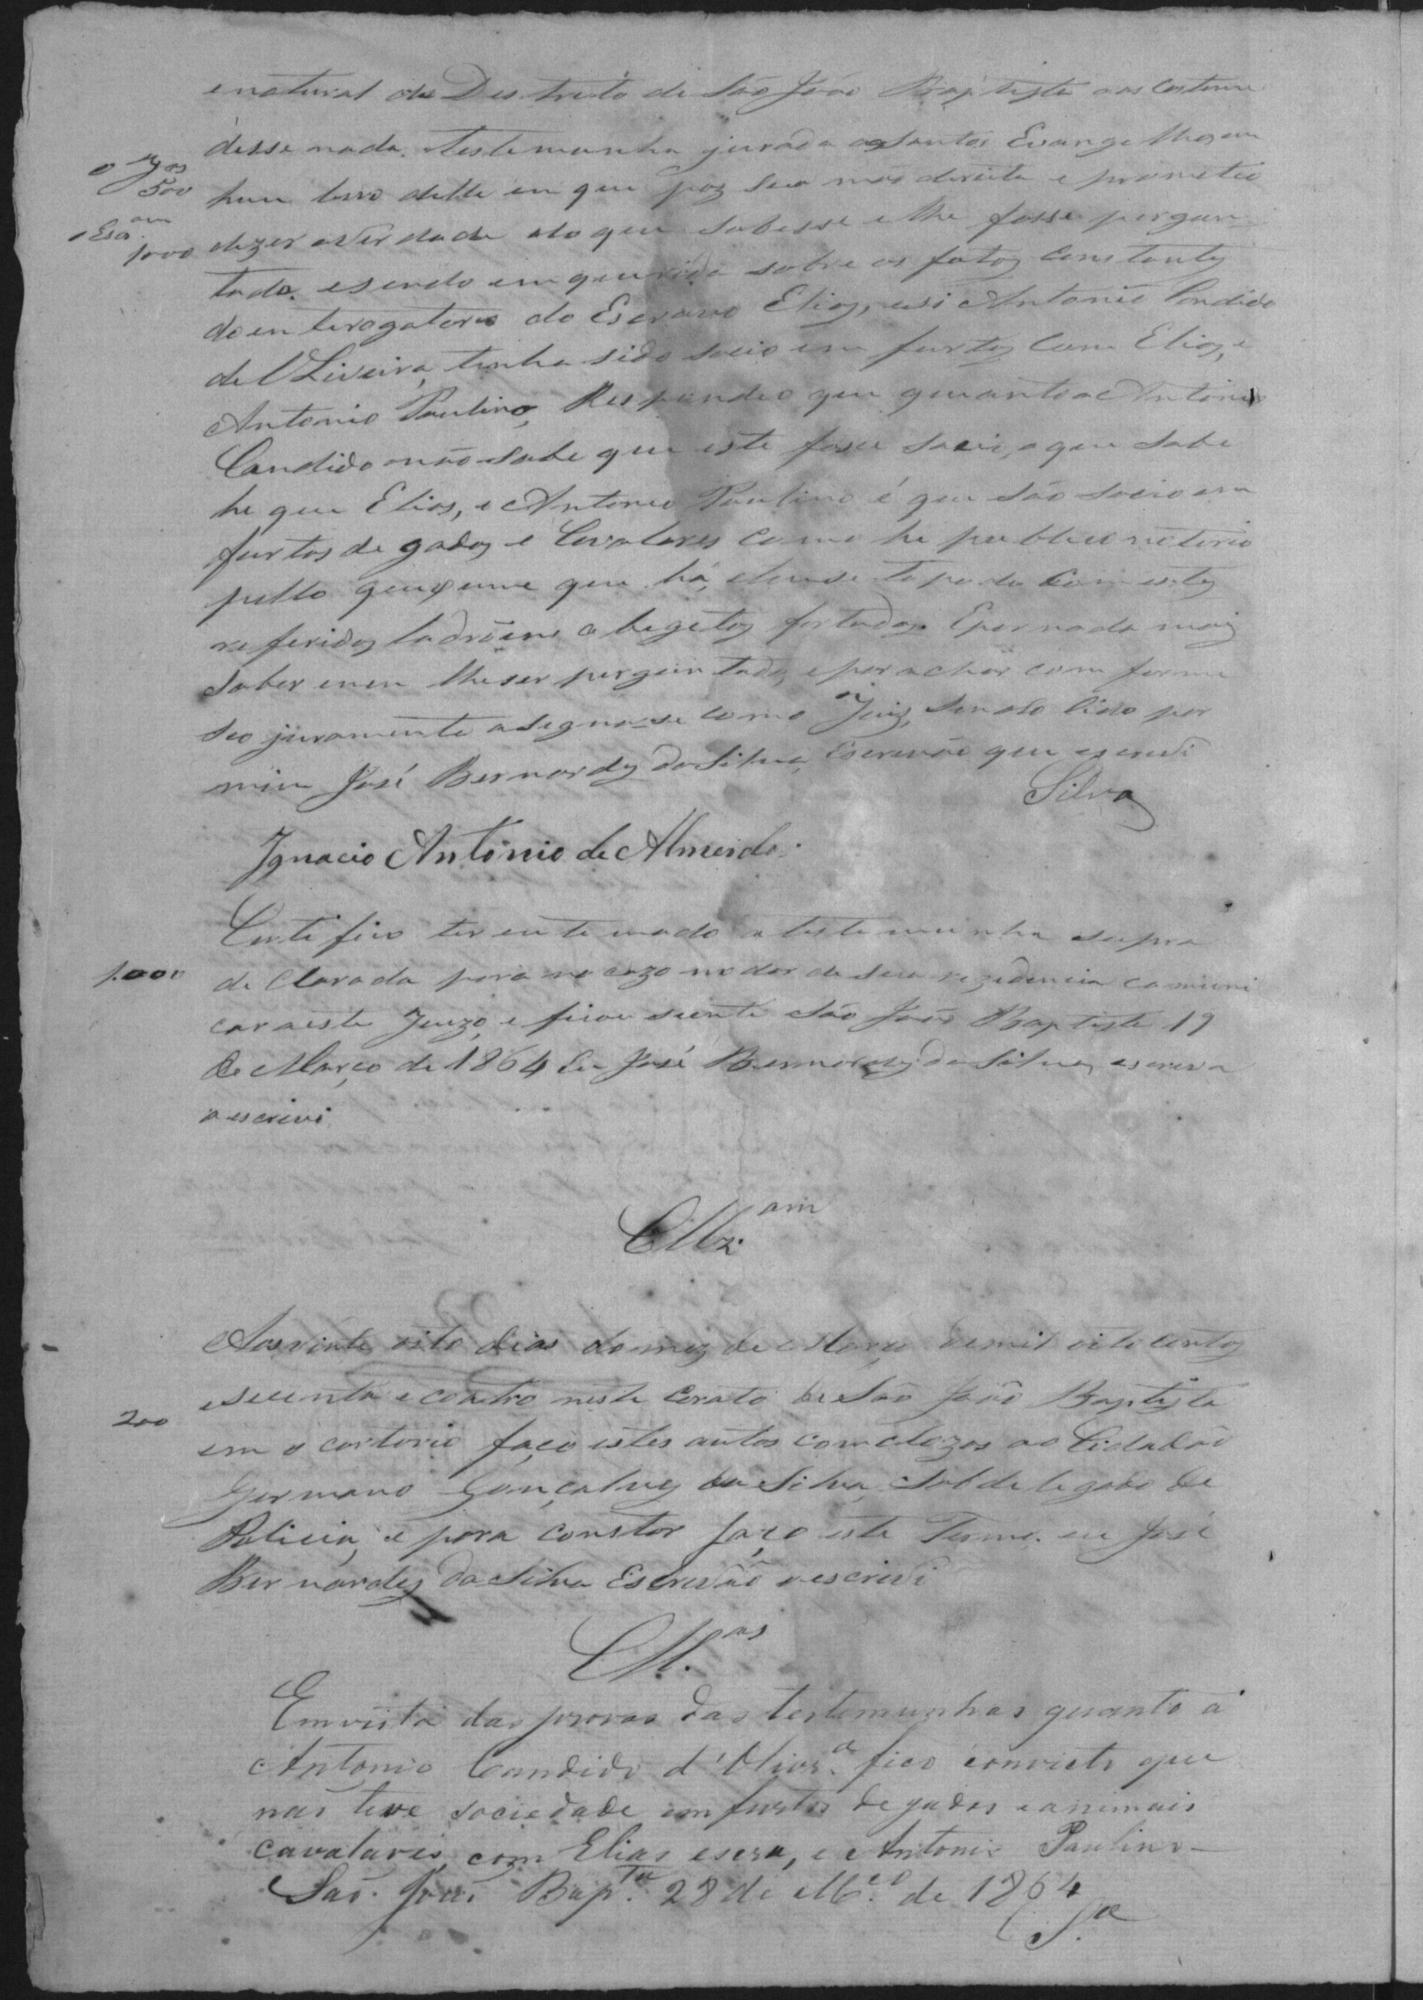 enatural do Destrito de São João Baptista aos Costume
desse nada. Testemunha jurada aos Santos Evangelhos em
o Juis
500
hum livro delle em que poz sua mão direita e prometeo
o Escram
1000
dizer averdade do que sobesse e lhe fosse pergun-
tado. esendo emquerida sobre os fatos Constantes
do enterogatorio do Escravo Elias, esi Antonio Candido
de OLiveira, tinha sido socio em furtos Com Elias, e
Antonio Paulino, Respondeo que quanto a Antonio
Candido não sabe que este fose socio, o que sabe
he que Elias, e Antonio Paulino é que são socio em
furtos de gados e Cavalares como he publico notorio
pello queixume que há, e
referidos ladroens obegetos fortados. Epor nada mais
saber enem lhe ser perguntado, epor achar comforme
seo juramento asegna-se como o Juis, sendo lido por
mim José Bernardes da Silva, Escrivão que escrevi
Silva
Ignacio António de Almeida.
Certifico ter entemado a testemunha supra
1.000
declarada para no cazo mudar de sua rezidencia comuni
car aeste Juizo, e ficou siente São João Baptista 19
de Março de 1864 Eu José Bernardes da Silva, escriva
o escrevi
Clz.am
Aosvinte oito dias domez de Março de mil oito centos
e secenta e coatro neste Corato de São João Baptista
200
em o cartorio faço estes autos comclozos ao Cidadão
Germano Gonçalves da Silva, Subdelegado de
Policia, e para constar faço este Termo. eu José
Bernardes da Silva Escrivão o escrevi
Cl.as
Emvista das provas das testemunhas quanto á
Antonio Candido d'Olivr.a fico convicto que
não teve sociedade em furtos de gados e animais
cavalares, com Elias escra, e Antonio Paulino-
São João Bap.ta 28 de M.ço de 1864
S.a